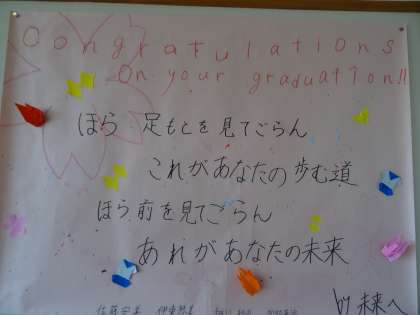 Congratulations
On your graduation!!
ほら 足もとを見てごらん
これがあなたの歩む道
ほら 前を見てごらん
あれがあなたの未来
by 未来へ